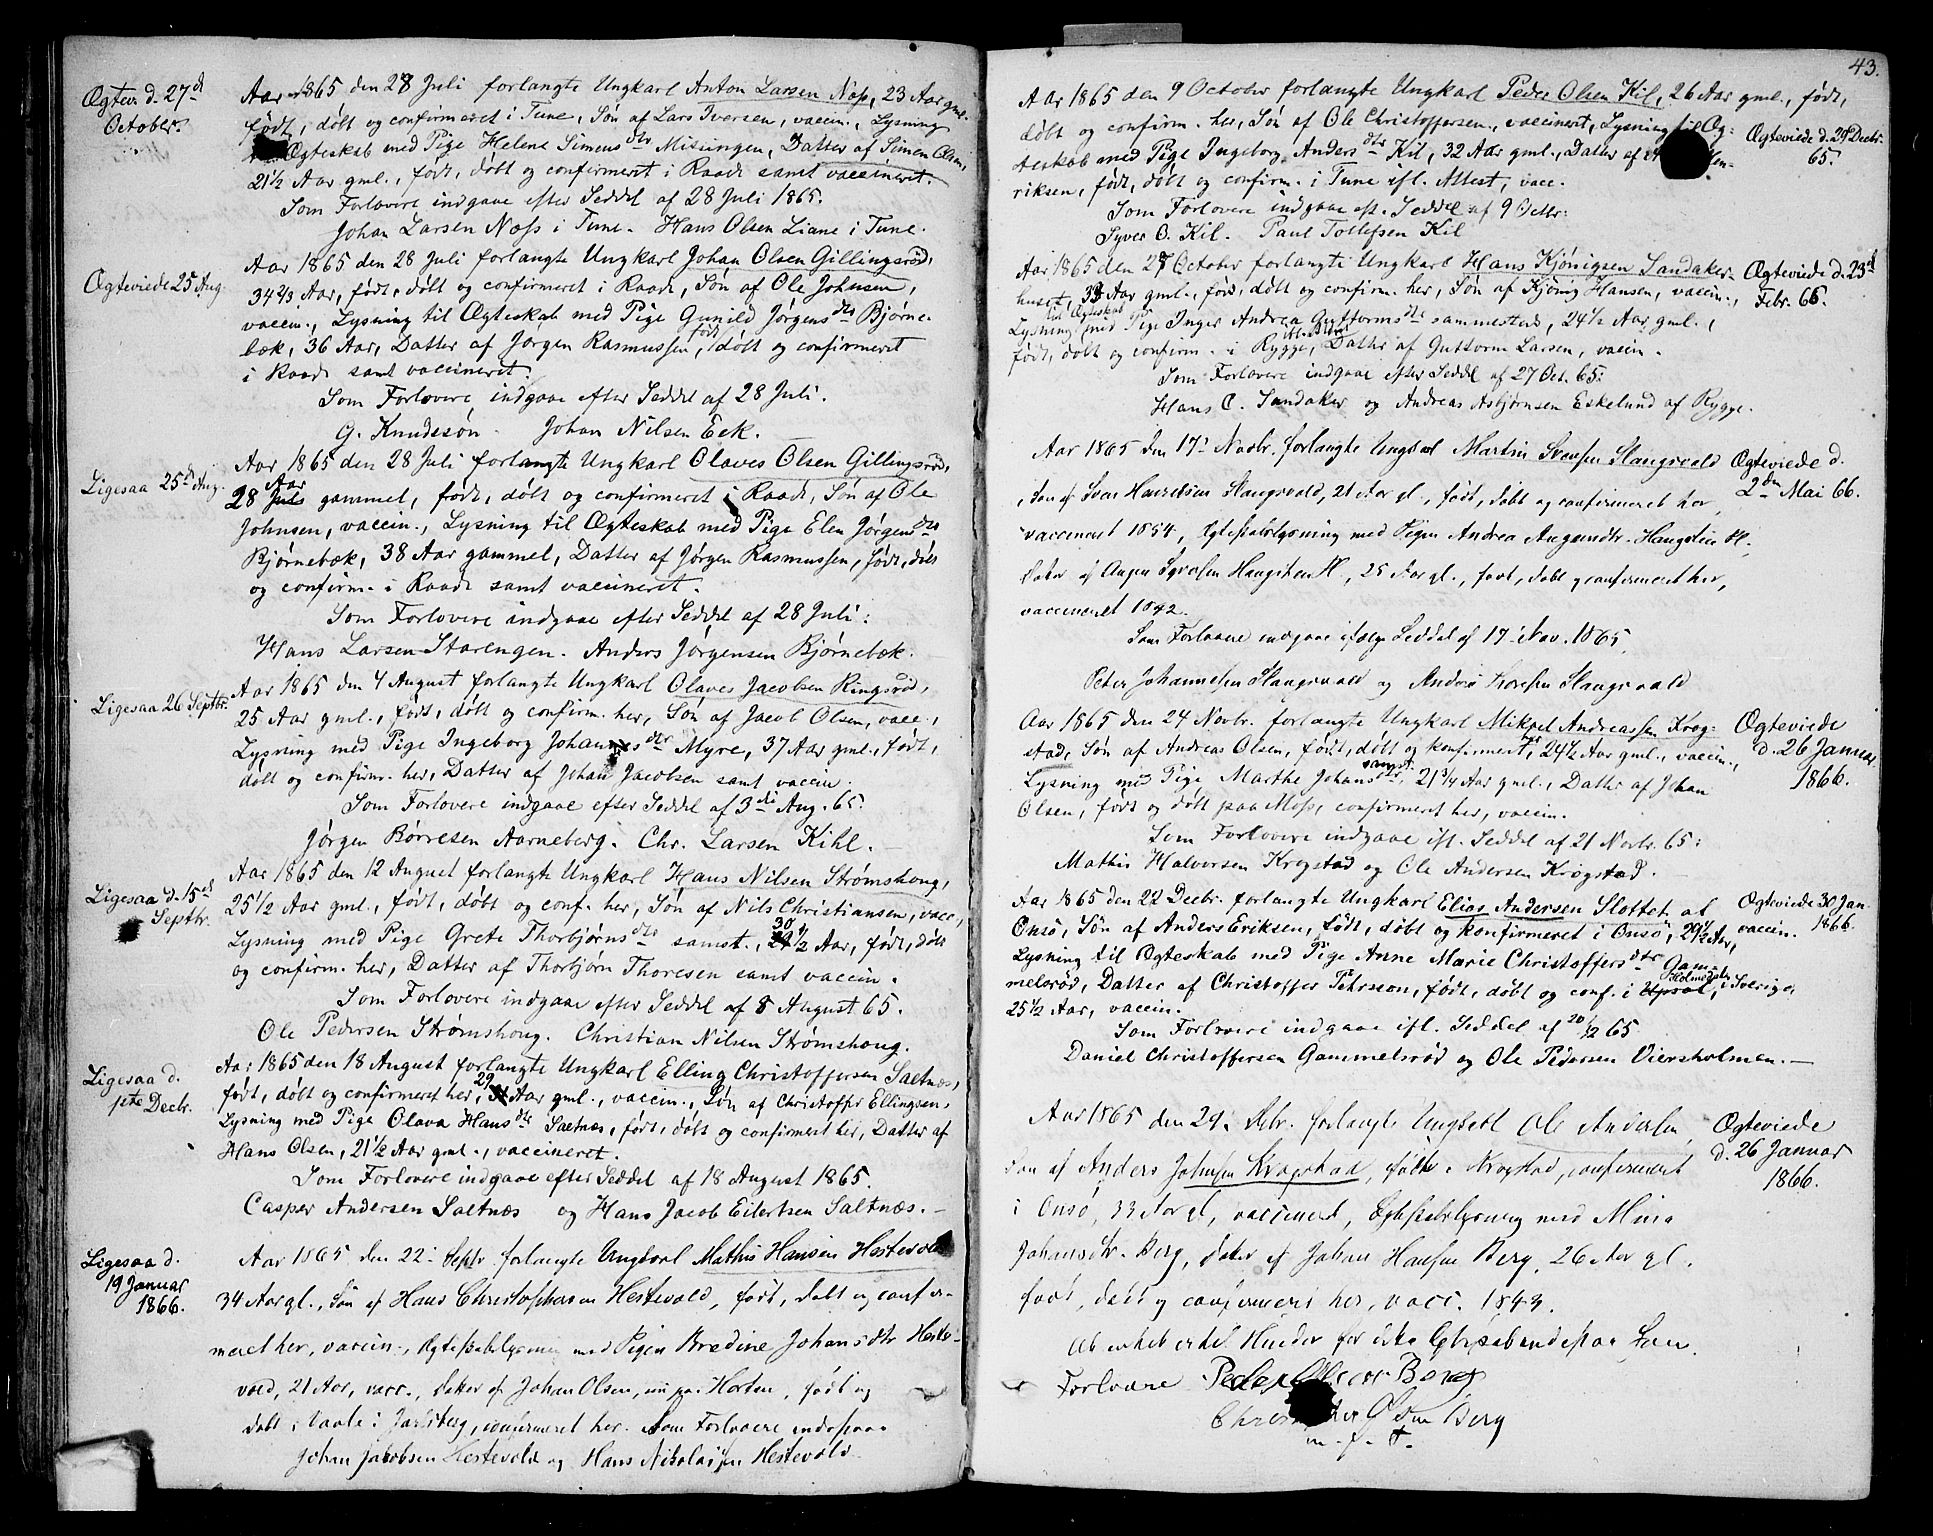 Ægtev. d. 27d
October.
Aar 1865 den 28 Juli forlangte Ungkarl Anton Larsen Noss, 23 Aar gml.
født, døbt og confirmeret i Tune, Søn af Lars Iversen, vaccin., Lysning
Ægteskab med Pige Helene Simensdtr Misingen, Datter af Simen Olsen,
21 1/2 Aar gml., født, døbt og confirmeret i Raade samt vaccineret.
Som Forlovere indgaae efter Seddel af 28 Juli 1865.
Johan Larsen Noss i Tune. Hans Olsen Liane i Tune.
Ægteviede 25 Aug.
Aar 1865 den 28 Juli forlangte Ungkarl Johan Olsen Gillingsrød,
34 2/3 Aar, født, døbt og confirmeret i Raade, Søn af Ole Johnsen,
vaccin., Lysning til Ægteskab med Pige Gunild Jørgensdtr Bjørne-
bæk, 36 Aar, Datter af Jørgen Rasmussen, født, døbt og confirmeret
i Raade samt vaccineret.
Som Forlovere indgaae efter Seddel af 28 Juli.
G. Knudssøn. Johan Nilsen Eek.
Ligesaa 25d Aug.
Aar 1865 den 28 Juli forlangte Ungkarl Olaves Olsen Gillingsrød,
28 Aar gammel, født, døbt og confirmeret i Raade, Søn af Ole
Johnsen, vaccin., Lysning til Ægteskab med Pige Elen Jørgensdtr
Bjørnebæk, 38 Aar gammel, Datter af Jørgen Rasmussen, født, døbt
og confirm. i Raade samt vaccineret.
Som Forlovere indgaae efter Seddel af 28 Juli:
Hans Larsen Starengen. Anders Jørgensen Bjørnebæk.
Ligesaa 26 Septbr.
Aar 1865 den 4 August forlangte Ungkarl Olaves Jacobsen Ringsrød,
25 Aar gml., født, døbt og confirm. her, Søn af Jacob Olsen, vacc.,
Lysning med Pige Ingeborg Johannesdtr Myre, 37 Aar gml., født,
døbt og confirm. her, Datter af Johan Jacobsen samt vaccin.
Som Forlovere indgaae efter Seddel af 3di Aug. 65.
Jørgen Børresen Aarneberg. Chr. Larsen Kihl.
Ligesaa d. 15d
Septbr.
Aar 1865 den 12 August forlangte Ungkarl Hans Nilsen Strømshoug,
25 1/2 Aar gml., født, døbt og conf. her, Søn af Nils Christiansen, vacc.,
Lysning med Pige Grete Thorbjørnsdtr samst., 30 1/2 Aar, født, døbt
og confirm. her, Datter af Thorbjørn Thoresen samt vaccin.
Som Forlovere indgaae efter Seddel af 8 August 65.
Ole Pedersen Strømshoug. Christian Nilsen Strømshoug.
Ligesaa d.
1ste Decbr.
Aar 1865 den 18 August forlangte Ungkarl Elling Christoffersen Saltnæs,
født, døbt og confirmeret her, 29 Aar gml., vaccin., Søn af Christoffer Ellingsen,
Lysning med Pige Olava Hansdtr Saltnæs, født, døbt og confirmert her, Datter af
Hans Olsen, 21 1/2 Aar gml., vaccineret.
Som Forlovere indgaae efter Seddel af 18 August 1865.
Casper Andersen Saltnæs og Hans Jacob Eilertsen Saltnæs.
Ligesaa d.
19 Januar
1866.
Aar 1865 den 22. Septr. forlangte Ungkarl Mathis Hansen Hestevold
34 Aar gl., Søn af Hans Christophersen Hestevold, født, døbt og confir-
meret her, vaccin., Ægteskabslysning med Pigen Bredine Johansdtr Heste-
vold, 21 Aar, vacc., Datter af Johan Olsen, nu paa Horten, født og
døbt i Vaale i Jarlsberg, confirmeret her. Som Forlovere indestaae
Johan Jacobsen Hestevold og Hans Nikolaisen Hestevold
43.
Aar 1865 den 9 October forlangte Ungkarl Peder Olsen Kil, 26 Aar gml., født,
døbt og confirm. her, Søn af Ole Christoffersen, vaccineret, Lysning til Æg-
teskab med Pige Ingeborg Andersdtr Kil, 32 Aar gml., Datter af
riksen, født, døbt og confirm. i Tune efl. Attest, vacc.
Som Forlovere indgaae eft. Seddel af 9 Octbr:
Syver O. Kil. Paul Tollefsen Kil
Ægteviede d. 29 Decbr.
65.
Aar 1865 den 27 October forlangte Ungkarl Hans Kjønigsen Sandaker-
huset, 33 Aar gml., født, døbt og confirm. her, Søn af Kjønig Hansen, vaccin.,
Lysning til Ægteskab med Pige Inger Andrea Guttormsdtr sammesteds, 24 1/2 Aar gml.,
født, døbt og confirm. i Rygge, Datter af Guttorm Larsen, vaccin.
Som Forlovere indgaae efter Seddel af 27 Oct. 65:
Hans C. Sandaker og Andreas Asbjørnsen Eskelund af Rygge.
Ægteviede d. 23d
Febr. 66.
Aar 1865 den 17. Novbr. forlangte Ungkarl Martin Svensen Slangsvold
, Søn af Sven Slangsvold, 21 Aar gl., født, døbt og confirmeret her,
vaccineret 1854, Ægteskabslysning med Pigen Andrea Augundtr. Haugsten H.,
Datter af Augen Syversen Haugsten H, 25 Aar gl., født, døbt og confirmeret her,
vaccineret 1842.
Som Forlovere indgaae ifølge Seddel af 17. Nov. 1865.
Peter Johannesen Slangsvold og Anders Slangsvold
Ægteviede d.
2den Mai 66.
Aar 1865 den 24 Novbr. forlangte Ungkarl Mikael Andreassen Krog-
stad, Søn af Andreas Olsen, født, døbt og konfirmert her, 24 1/2 Aar gml., vaccin.,
Lysning med Pige Marthe Johansdtr samst., 21 3/4 Aar gml., Datter af Johan
Olsen, født og døbt paa Moss, confirmeret her, vaccin.
Som Forlovere indgaae eft. Seddel af 21 Novbr. 65:
Mathis Halvorsen Krogstad og Ole Andersen Krogstad.
Ægteviede
d. 26 Januar
1866.
Aar 1865 den 22 Decbr. forlangte Ungkarl Elias Andersen Slottet af
Onsø, Søn af Anders Eriksen, født, døbt og konfirmeret i Onsø, 29 1/2 Aar, vaccin.
Lysning til Ægteskab med Pige Anne Marie Christoffersdtr Gam-
melsrød, Datter af Christoffer Pehrsson, født, døbt og conf. i Holmedal, i Sverige,
25 1/2 Aar, vaccin.
Som Forlovere indgaae efl. Seddel af 20/12 65
Daniel Christoffersen Gammelsrød og Ole Pedersen Viersholmen.
Ægteviede 30 Jan
1866.
Aar 1865 den 29. Debr. forlangte Ungkarl Ole Andersen,
Søn af Anders Johnsen Krogstad, født i Krogstad, confirmeret
i Onsø, 33 Aar gl., vaccineret, Ægteskabslysning med Mina
Johansdtr. Berg, Datter af Johan Hansen Berg, 26 Aar gl.
født, døbt og confirmeret her, vacc. 1843.
At intet er til Hinder for dette Ægteskab indestaae som
Forlovere Peder Olsen Berg
Olsen Berg
m. f. P.
Ægteviede
d. 26 Januar
1866.